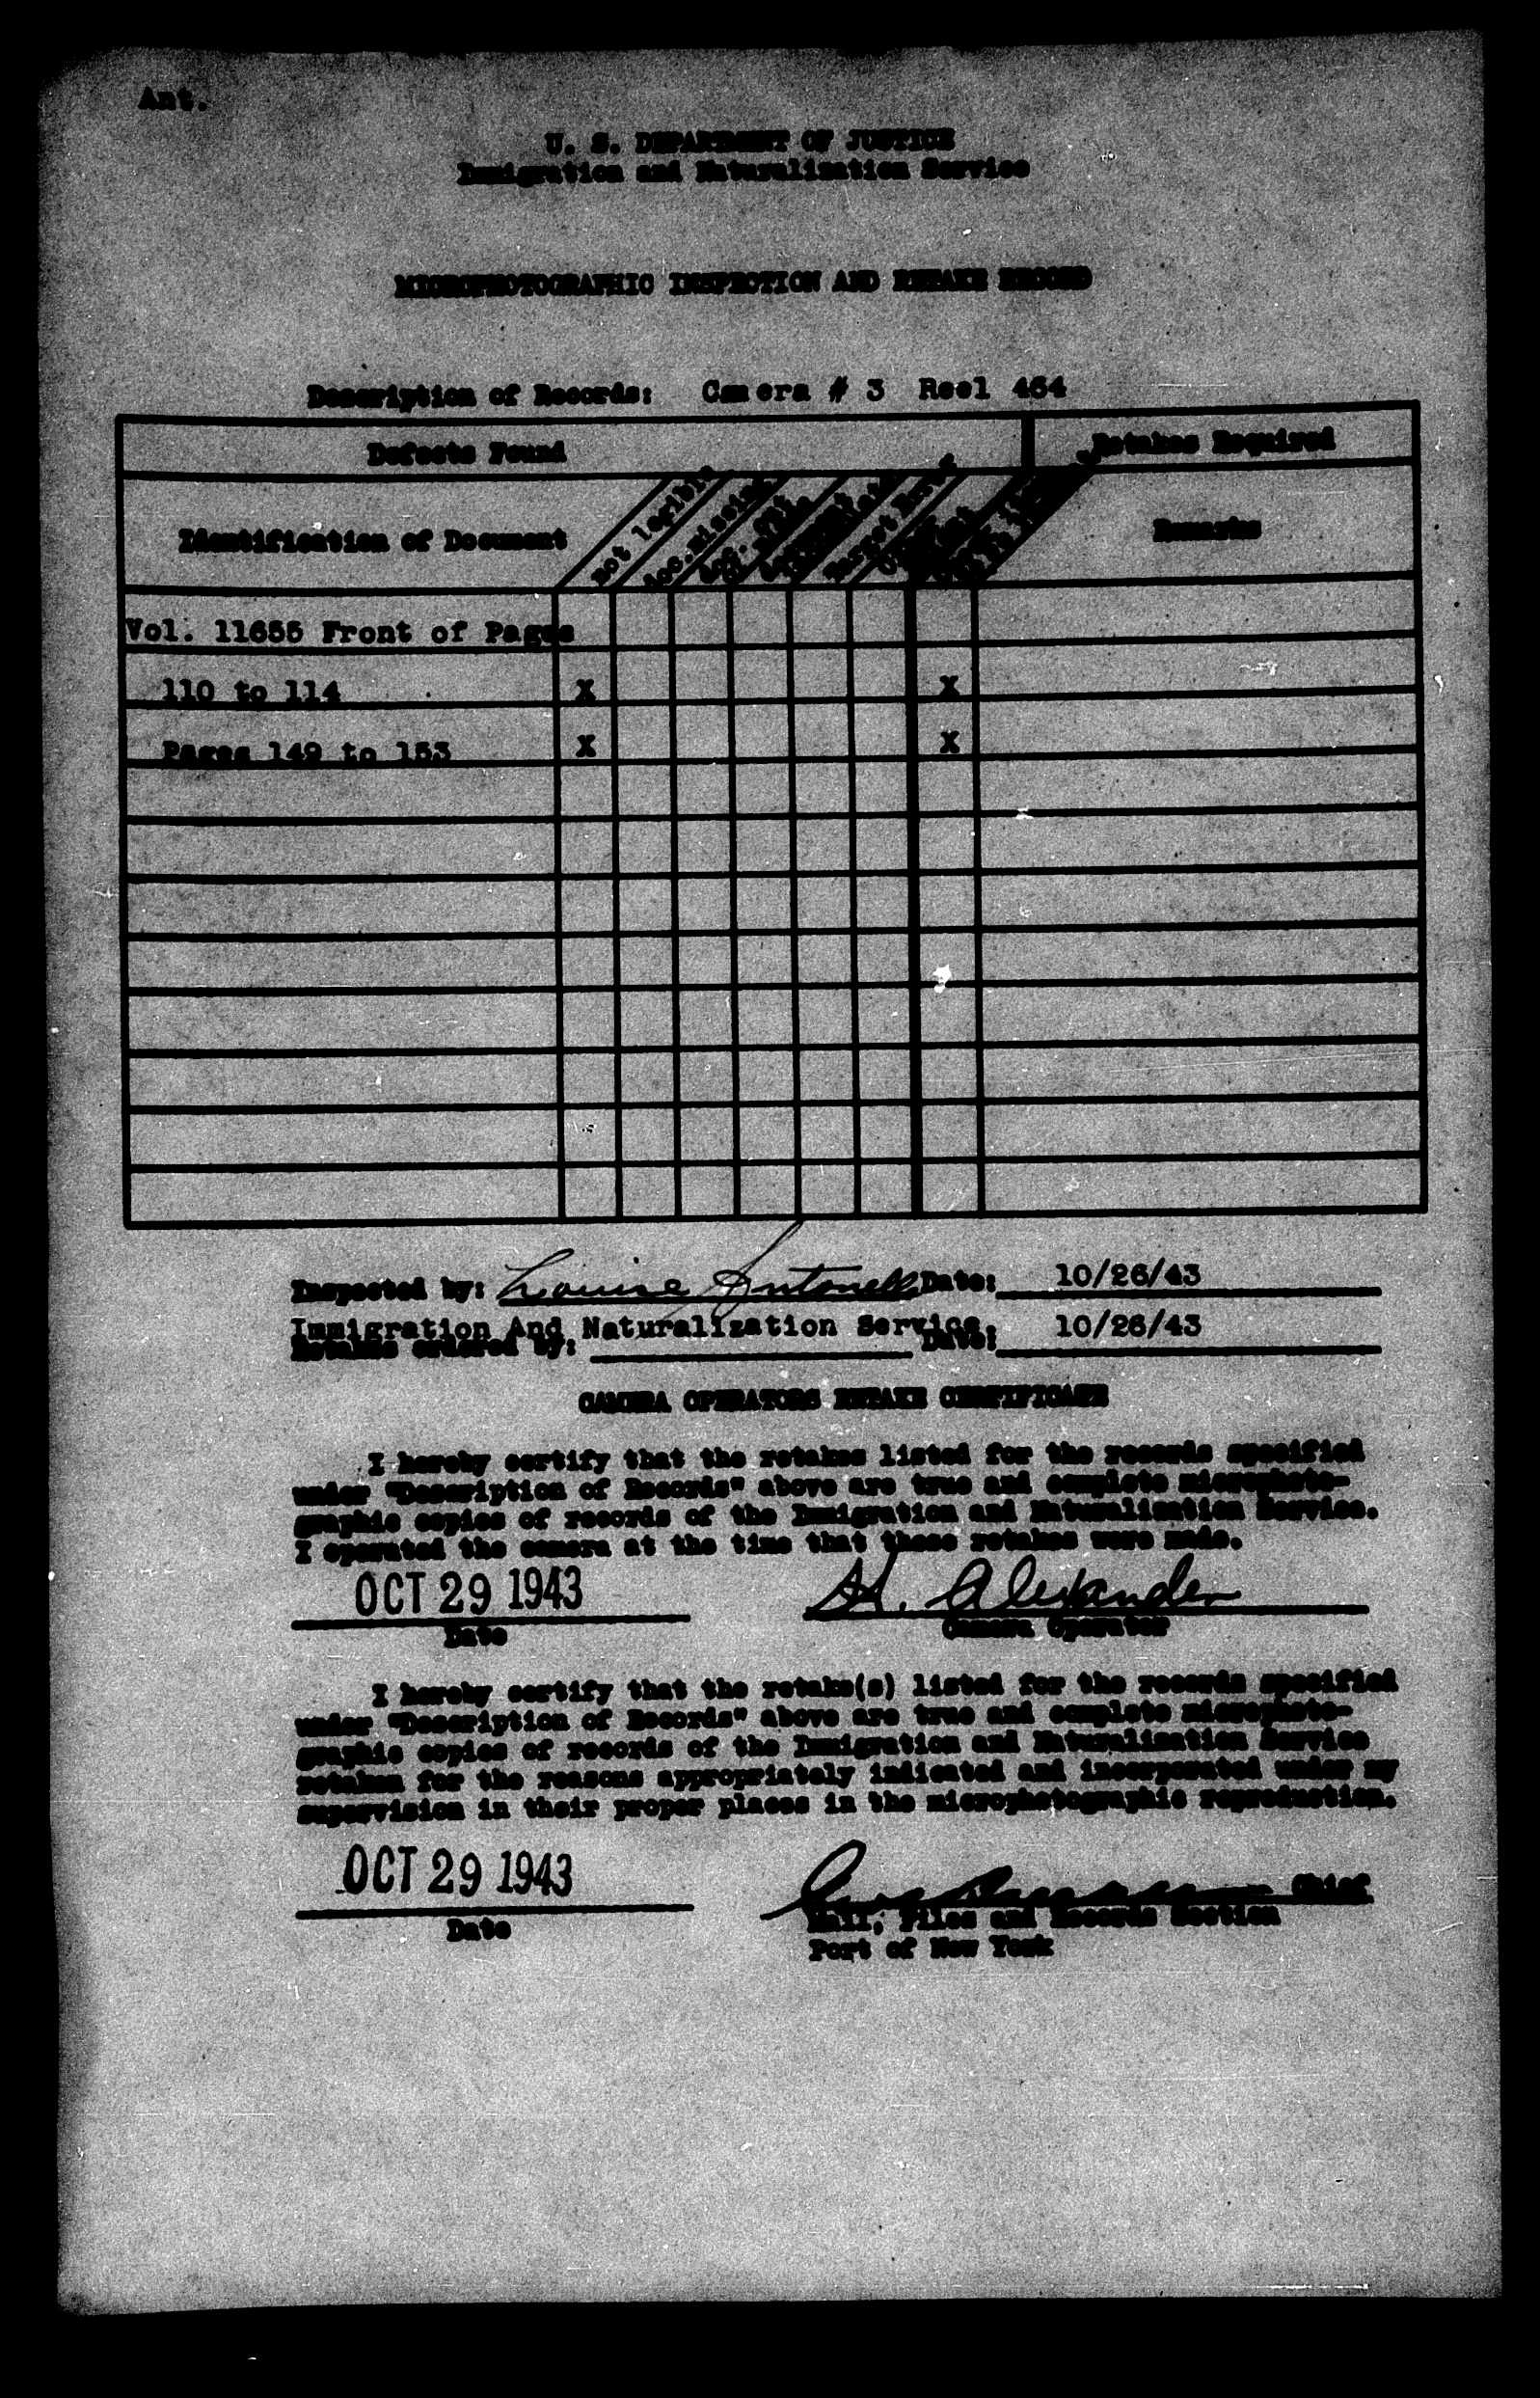 Ant.
U. S. DEPARTMENT OF JUSTICE
Immigration and Naturalization Service
MICROPHOTOGRAPHIC INSPECTION AND RETAKE RECORD
Description of Records: Camera # 3 Reel 464
Defects Found
Retakes Required
Identification of Document
Not legible
Doc. missing
Remarks
Vol. 11655 Front of Pages
110 to 114 X X
Pages 149 to 153 X X
Inspected by: Louise Antonelli Date: 10/26/43
Immigration And Naturalization Service. 10/26/43
Retakes ordered by: Date:
CAMERA OPERATORS RETAKE CERTIFICATE
I hereby certify that the retakes listed for the records specified
under "Description of Records" above are true and complete microphoto-
graphic copies of records of the Immigration and Naturalization Service.
I operated the camera at the time that these retakes were made.
OCT 29 1943 H. Alexander
Date Camera Operator
I hereby certify that the retake(s) listed for the records specified
under "Description of Records" above are true and complete microphoto-
graphic copies of records of the Immigration and Naturalization Service
retaken for the reasons appropriately indicated and incorporated under my
supervision in their proper places in the microphotographic reproduction.
OCT 29 1943 Chief
Date Mail, Files and Records Section
Port of New York